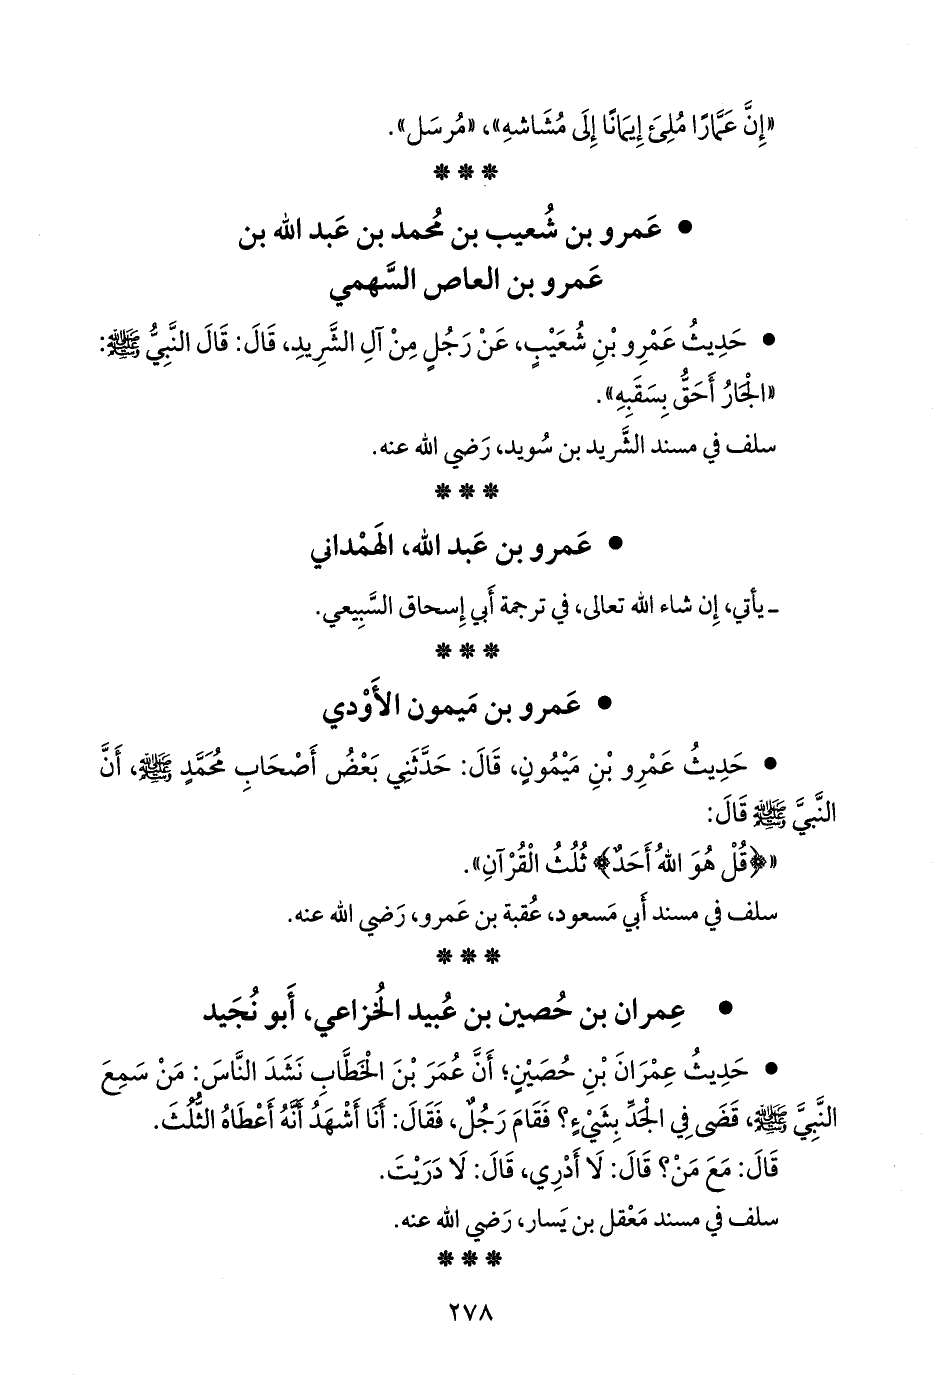 «إِنَّ عَمَّارًا مُلِئَ إِيمَانًا إِلَى مُشَاشهِ»، «مُرسَل».
* * *
• عَمرو بن شُعيب بن مُحمد بن عَبد الله بن
عَمرو بن العاص السَّهمي
• حَدِيثُ عَمْرِو بْنِ شُعَيْبٍ، عَنْ رَجُلٍ مِنْ آلِ الشَّرِيدِ، قَالَ: قَالَ النَّبِيُّ ﷺ:
«الْجَارُ أَحَقُّ بِسَقَبِهِ».
سلف في مسند الشَّريد بن سُويد، رَضي الله عنه.
* * *
• عَمرو بن عَبد الله، الهَمْداني
ـ يأتي، إِن شاء الله تعالى، في ترجمة أَبي إِسحاق السَّبِيعي.
* * *
• عَمرو بن مَيمون الأَوْدي
• حَدِيثُ عَمْرِو بْنِ مَيْمُونٍ، قَالَ: حَدَّثَنِي بَعْضُ أَصْحَابِ مُحَمَّدٍ ﷺ، أَنَّ
النَّبِيَّ ﷺ قَالَ:
«﴿قُلْ هُوَ اللهُ أَحَدٌ﴾ ثُلُثُ الْقُرْآنِ».
سلف في مسند أَبي مَسعود، عُقبة بن عَمرو، رَضي الله عنه.
* * *
• عِمران بن حُصين بن عُبيد الخُزاعي، أَبو نُجَيد
• حَدِيثُ عِمْرَانَ بْنِ حُصَيْنٍ؛ أَنَّ عُمَرَ بْنَ الْخَطَّابِ نَشَدَ النَّاسَ: مَنْ سَمِعَ
النَّبِيَّ ﷺ، قَضَى فِي الْجَدِّ بِشَيْءٍ؟ فَقَامَ رَجُلٌ، فَقَالَ: أَنَا أَشْهَدُ أَنَّهُ أَعْطَاهُ الثُّلُثَ.
قَالَ: مَعَ مَنْ؟ قَالَ: لَا أَدْرِي، قَالَ: لَا دَرَيْتَ.
سلف في مسند مَعْقل بن يَسار، رَضي الله عنه.
* * *
٢٧٨